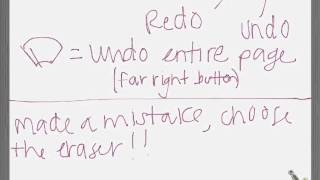 Redo undo
= undo entire page
(far right button)
made a mistake, choose
the eraser!!